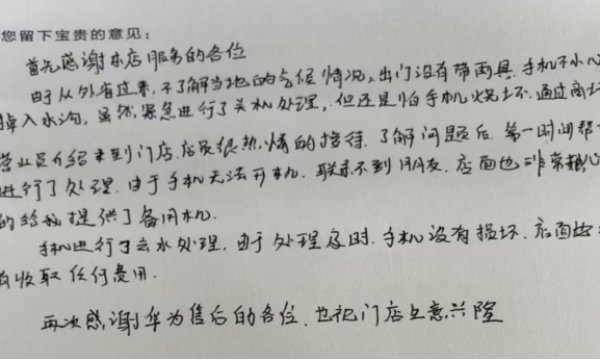 您留下宝贵的意见:
首先感谢本店服务的各位
由于从外省过来,不了解当地的气候情况,出门没有带雨具.手机不小心
掉入水沟,虽然紧急进行了关机处理,但还是怕手机烧坏.通过商场
营业员介绍来到门店.店员很热情的接待.了解问题后.第一时间帮
进行了处理.由于手机无法开机.联系不到朋友.店面也非常贴心
的给我提供了备用机.
手机进行了去水处理.由于处理及时.手机没有损坏.店面也
有收取任何费用.
再次感谢华为售后的各位.也祝门店生意兴隆